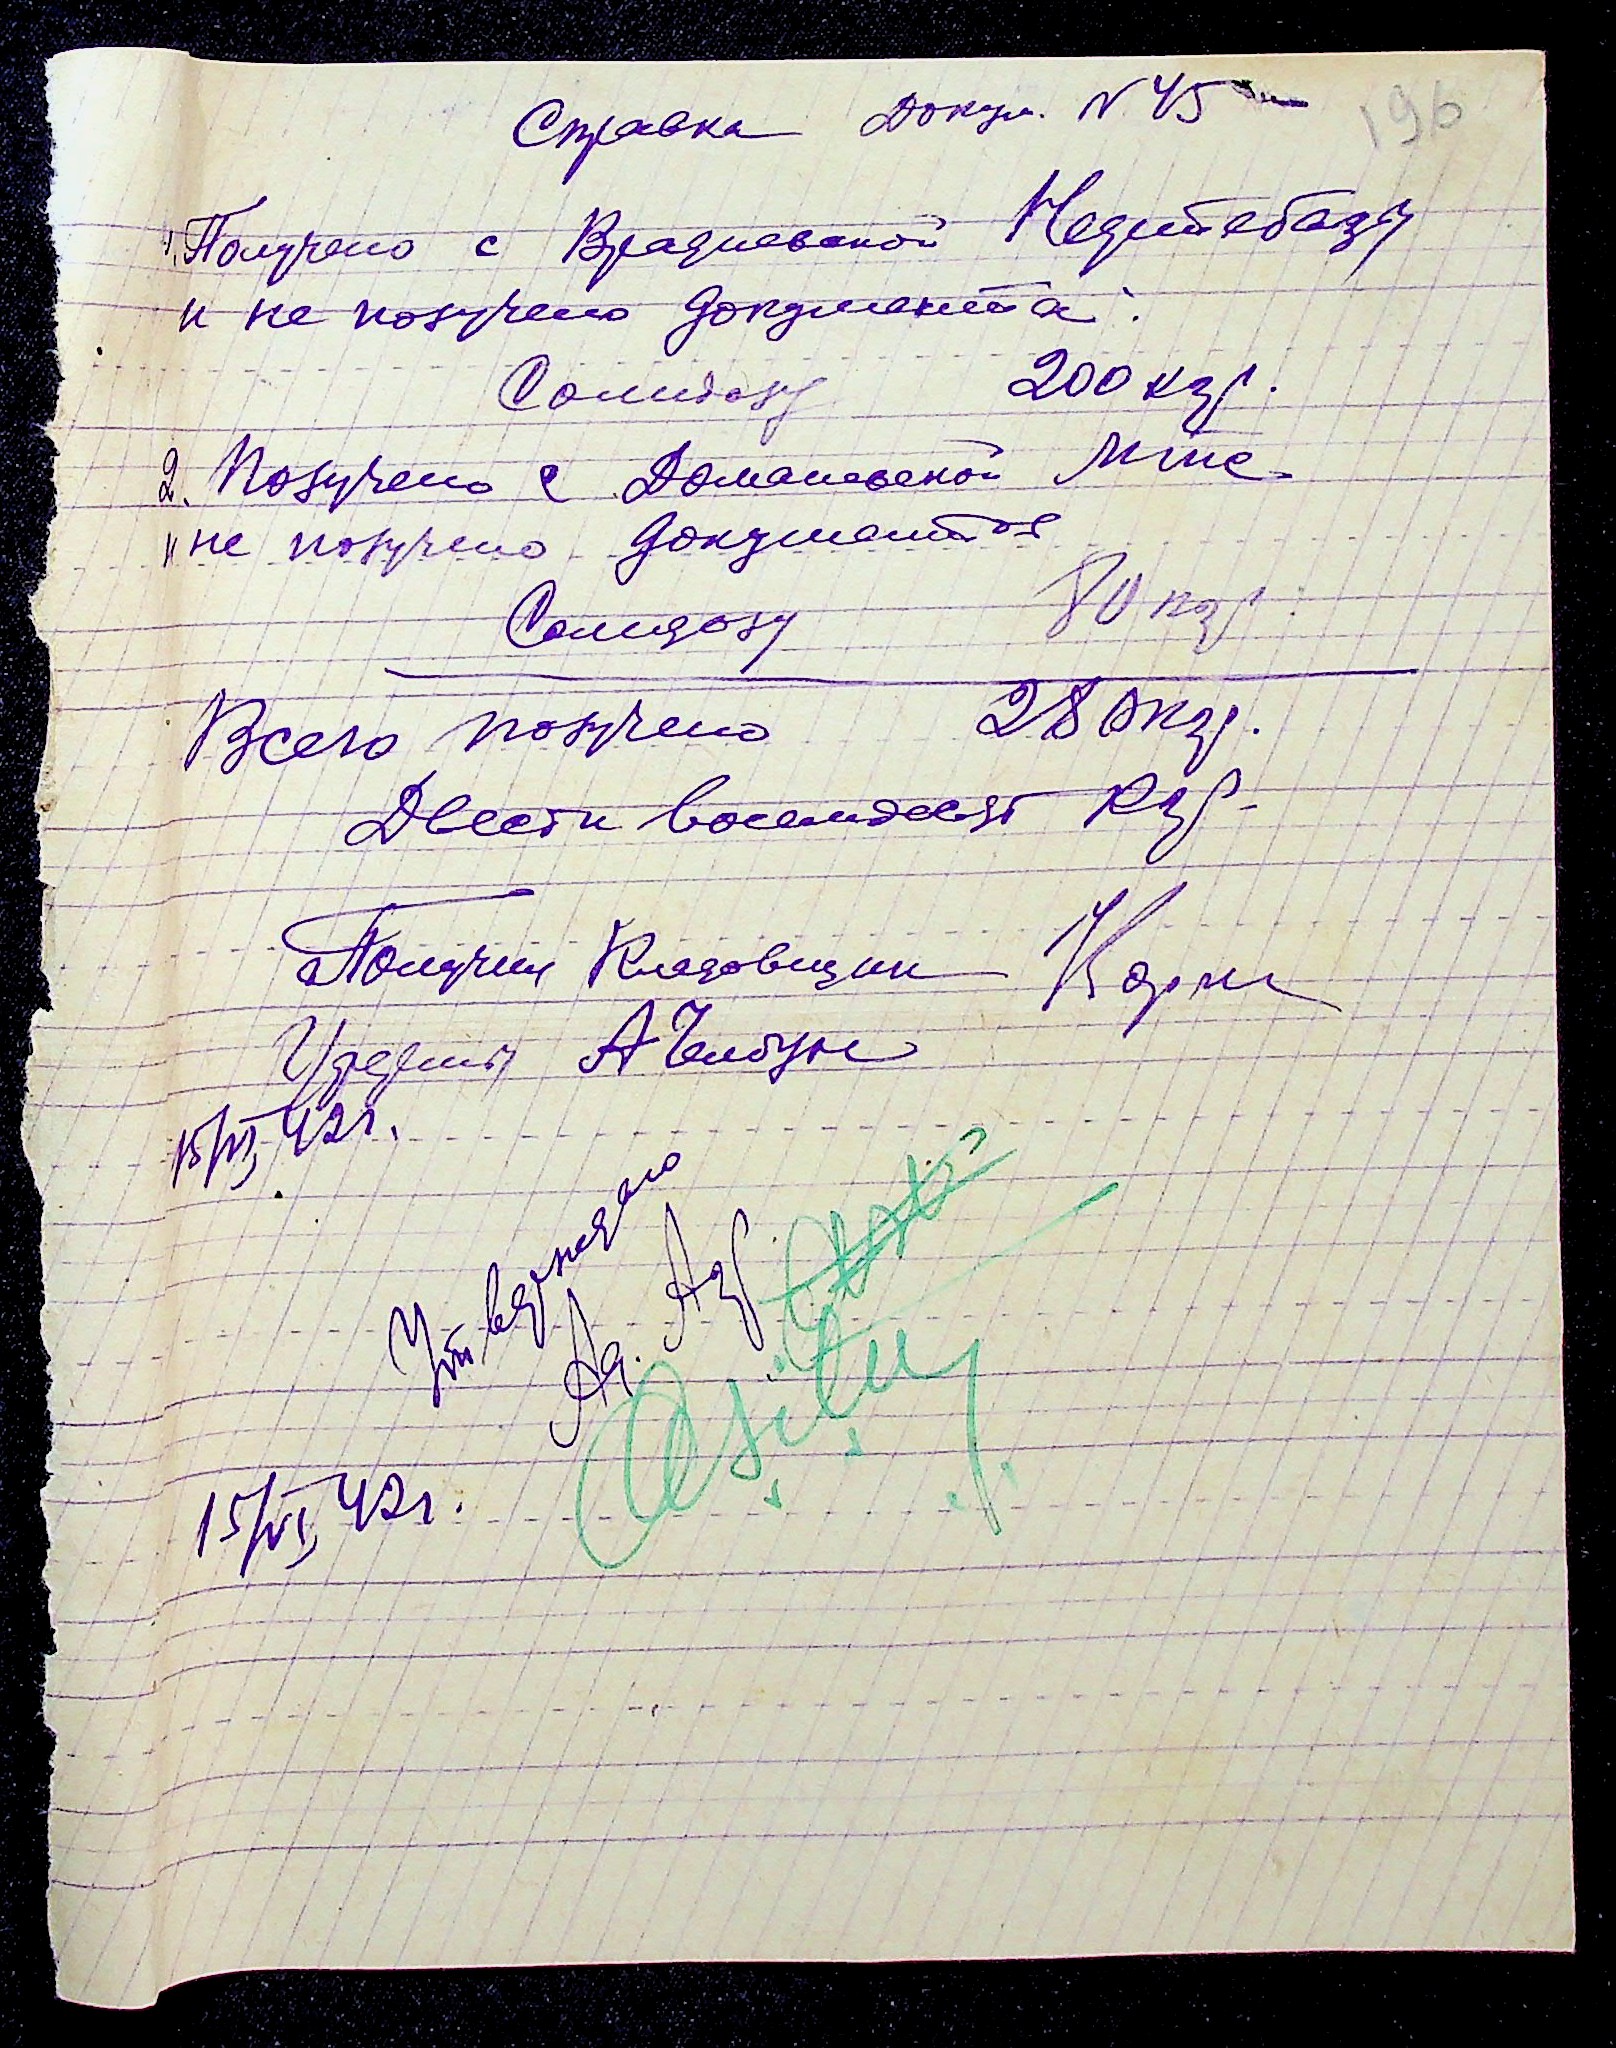 Справка Докум. N 45
196
1. Получено с Врадиевской Нефтебазы
и не получено документа:
Солидолу 200 кгр.
2. Получено с Доманевской мтс
и не получено документов
Солидолу 80 кгр.
Всего получено 280 кгр.
Двести восемдесят кгр.
Получил Кладовщик
15/VI, 42 г.
Утверждаю
Аг.
15/VI, 42 г.